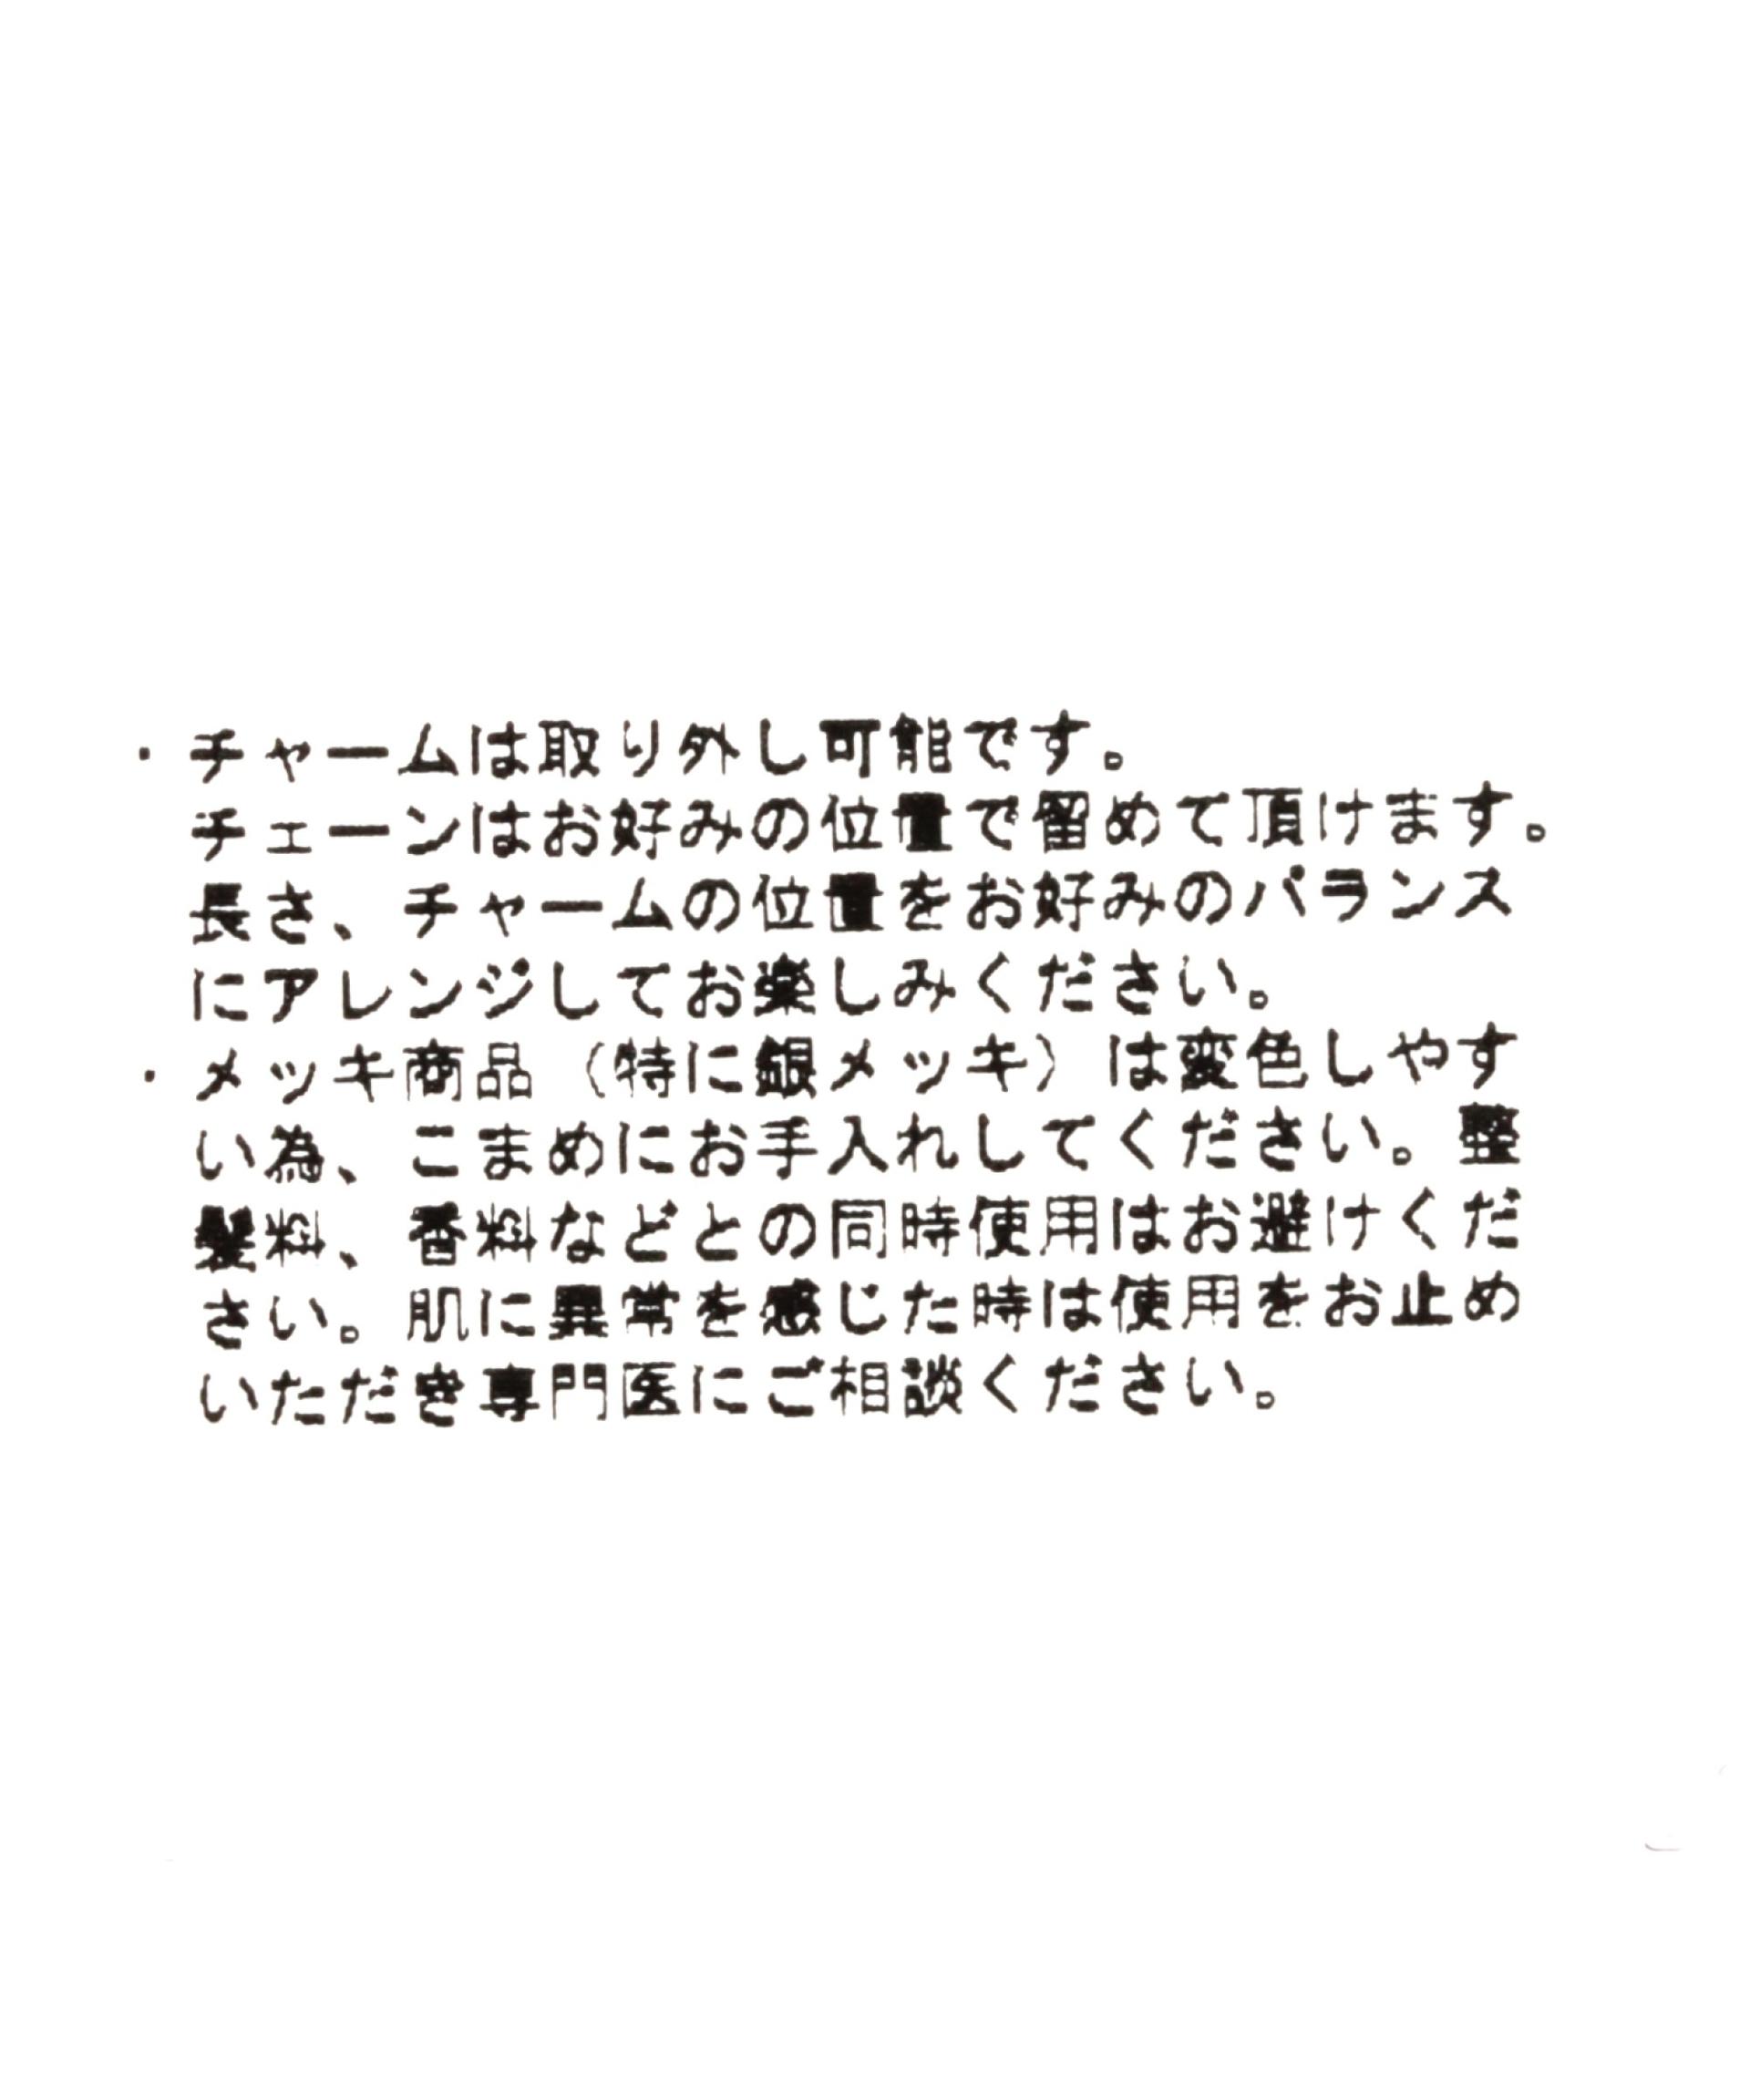 ・チャームは取り外し可能です。
チェーンはお好みの位置で留めて頂けます。
長さ、チャームの位置をお好みのバランス
にアレンジしてお楽しみください。
・メッキ商品（特に銀メッキ）は変色しやす
い為、こまめにお手入れしてください。整
髪料、香料などとの同時使用はお避けくだ
さい。肌に異常を感じた時は使用をお止め
いただき専門医にご相談ください。